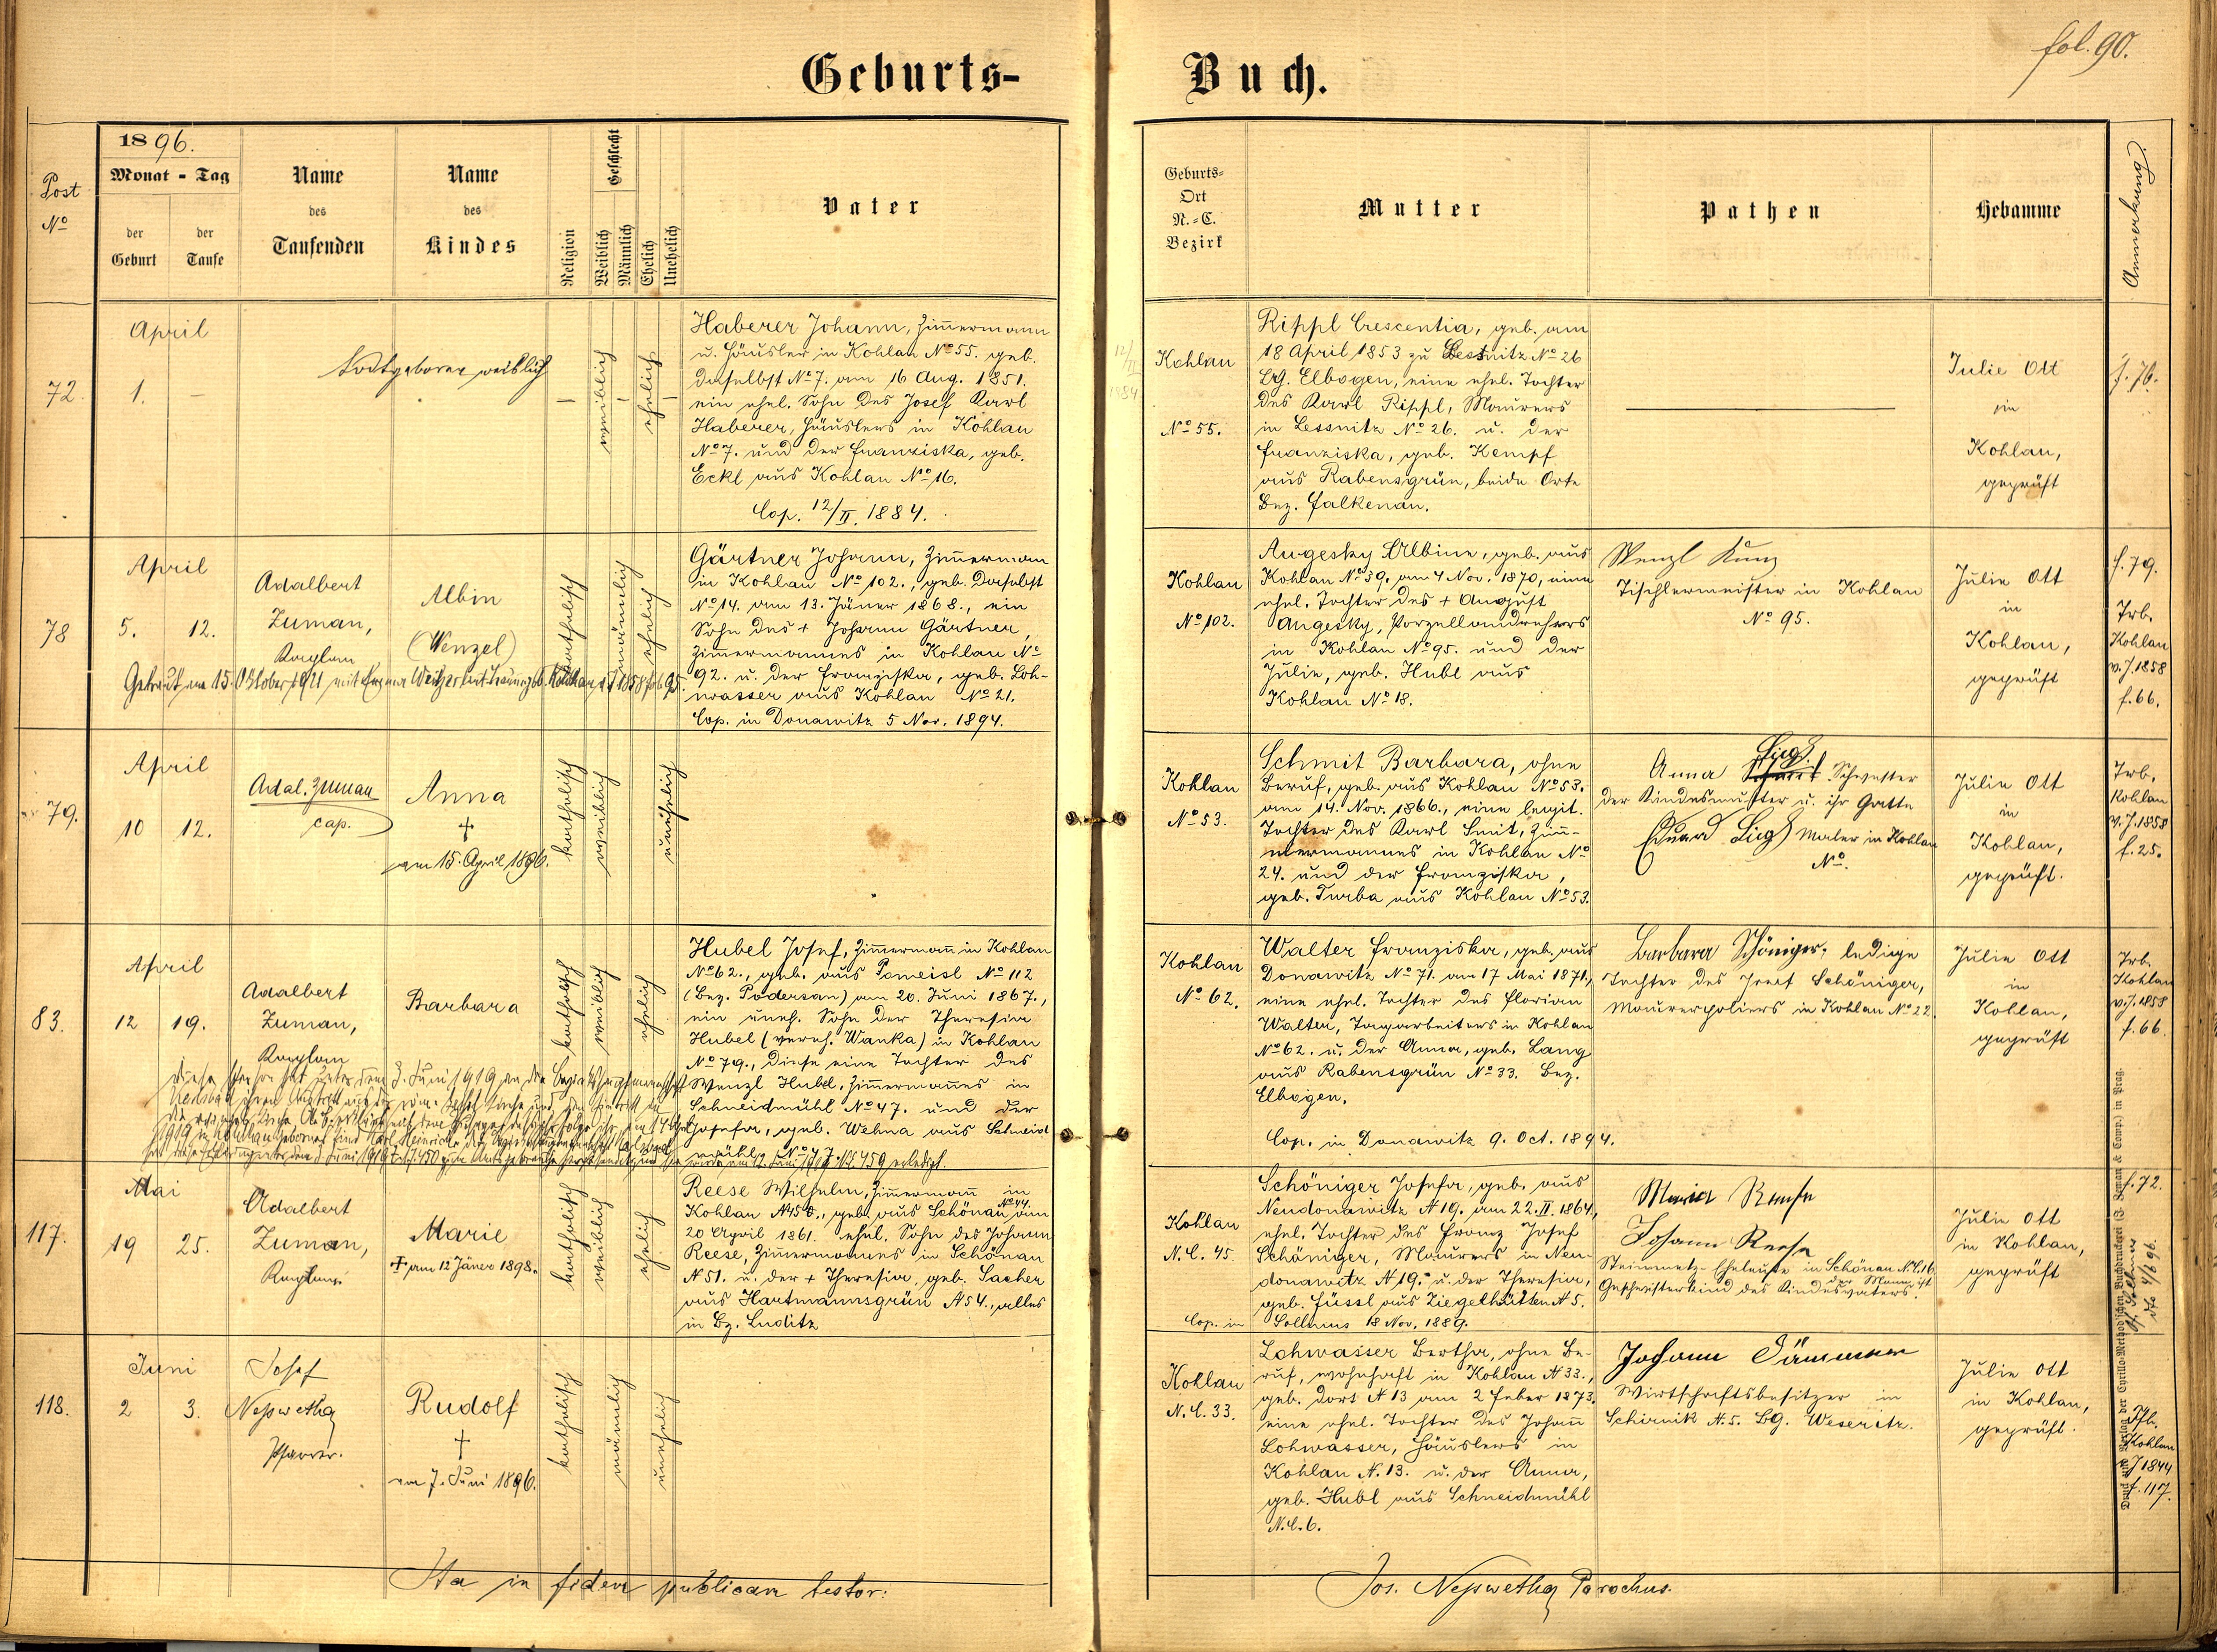 fol. 90.
Geburts- Buch.
Post
No
1896.
Monat - Tag
der
Geburt
der
Taufe
Name
des
Taufenden
Name
des
Kindes
Religion
Geschlecht
Weiblich
Männlich
Ehelich
Unehelich
Vater
Geburts-
Ort
N.-C.
Bezirk
Mutter
Pathen
Hebamme
Anmerkung.
72.
April
1. —
Todtgeboren weiblich
—
weiblich
—
ehelich
—
Haberer Johann, Zim̄ermann
u. Häusler in Kohlau No 55. geb.
daselbst No 7. am 16 Aug. 1851.
ein ehel. Sohn des Josef Karl
Haberer, Häuslers in Kohlau
No 7. und der Franziska, geb.
Eckl aus Kohlau No 16.
Cop. 12/II. 1884.
12/II 1884
Kohlau
No 55.
Rippl Crescentia, geb. am
18 April 1853 zu Lessnitz No 26
Bg. Elbogen, eine ehel. Tochter
des Karl Rippl, Maurers
in Lessnitz No 26. u. der
Franziska, geb. Kempf
aus Rabensgrün, beide Orte
Bez. Falkenau.
Julie Ott
in
Kohlau,
geprüft
f. 76.
78
April
5. 12.
Adalbert
Zuman,
Kaplan
Albin
(Wenzel)
katholisch
män̄lich
ehelich
Getraut am 15. Oktober 1921 mit
Gärtner Johann, Zim̄ermann
in Kohlau No 102., geb. daselbst
No 14. am 13. Jäner 1868., ein
Sohn des + Johann Gärtner,
Zim̄ermannes in Kohlau No
92. u. der Franziska, geb. Loh-
wasser aus Kohlau No 21.
Cop. in Donawitz 5 Nov. 1894.
Kohlau
No 102.
Augesky Albine, geb. aus
Kohlau No 59. am 4 Nov. 1870, eine
ehel. Tochter des + August
Augesky, Porzellandrehers
in Kohlau No 95. und der
Julie, geb. Hubl aus
Kohlau No 18.
Wenzl Kunz
Tischlermeister in Kohlau
No 95.
Julie Ott
in
Kohlau,
geprüft
f. 79.
Trb.
Kohlau
v. J. 1858
f. 66.
79.
April
10 12.
Adal. Zuman
cap.
Anna
†
am 15. April 1896.
katholisch
weiblich
unehelich
Kohlau
No 53.
Schmit Barbara, ohne
Beruf, geb. aus Kohlau No 53.
am 14. Nov. 1866., eine legit.
Tochter des Karl Smit, Zim̄-
mermannes in Kohlau No
24. und der Franziska,
geb. Turba aus Kohlau No 53.
Anna Schwester
der Kindesmutter u. ihr Gatte
Eduard Maler in Kohlau
No.
Julie Ott
in
Kohlau,
geprüft.
Trb.
Kohlau
v. J. 1858
f. 25.
83.
April
12 19.
Adalbert
Zuman,
Kaplan
Barbara
katholisch
weiblich
ehelich
Hubel Josef, Zim̄ermann in Kohlau
No 62., geb. aus Pomeisl No 112
(Bez. Podersam) am 20. Juni 1867.,
ein uneh. Sohn der Theresia
Hubel (vereh. Wanka) in Kohlau
No 79., diese eine Tochter des
Wenzl Hubel, Zim̄ermannes in
Schneidmühl No 47. und der
Josefa, geb. Wehna aus Schneid
mühl No 47.
Kohlau
No 62.
Walter Franziska, geb. aus
Donawitz No 71. am 17 Mai 1871.,
eine ehel. Tochter des Florian
Walter, Tagarbeiters in Kohlau
No 62. u. der Anna, geb. Lang
aus Rabensgrün No 33. Bez.
Elbogen.
Cop. in Donawitz 9. Oct. 1894.
Barbara Schöniger, ledige
Tochter des Josef Schöniger,
Maurerpoliers in Kohlau No 22
Julie Ott
in
Kohlau,
geprüft
Trb.
Kohlau
v. J. 1858
f. 66.
117.
Mai
19 25.
Adalbert
Zuman,
Kaplan
Marie
† am 12 Jäner 1898.
katholisch
weiblich
ehelich
Reese Wilhelm, Zim̄ermann in
Kohlau N 45., geb. aus Schönau No 44. am
20 April 1861. ehel. Sohn des Johann
Reese, Zim̄ermannes in Schönau
N 51. u. der + Theresia, geb. Sacher
aus Hartmannsgrün N 54., alles
in Bz. Luditz
Kohlau
N. C. 45.
Schöniger Josefa, geb. aus
Neudonawitz N 19. am 22. II. 1864.,
ehel. Tochter des Franz Josef
Schöniger, Maurers in Neu-
donawitz N 19. u. der Theresia,
geb. Füssl aus Ziegelhütten N 5.
Cop. in Sollmus 18 Nov. 1889.
Maria Reese
Johann Reese
Steinmetz-Eheleute in Schönau N. C. 16
der Mann ist
Geschwisterkind des Kindesvaters.
Julie Ott
in Kohlau,
geprüft
f. 72.
118.
Juni
2 3.
Josef
Nepswetha
Pfarrer.
Rudolf
†
am 7. Juni 1896.
katholisch
män̄lich
unehelich
Kohlau
N. C. 33.
Lohwasser Bertha, ohne Be-
ruf, wohnhaft in Kohlau N 33.,
geb. dort N 13 am 2 Feber 1873.
eine ehel. Tochter des Johan̄
Lohwasser, Häuslers in
Kohlau N. 13. u. der Anna,
geb. Hubl aus Schneidmühl
N. C. 6.
Johann
Wirtschaftsbesitzer in
Schirnik N. 5. Bg. Weseritz.
Julie Ott
in Kohlau,
geprüft.
Kohlau
J 1844
f. 117.
Druck und Verlag der Cyrillo-Method'schen Buchdruckerei (J. Zeman & Comp.) in Prag.
Ita in fidem publicam testor:
Jos. Nepswetha Parochus.